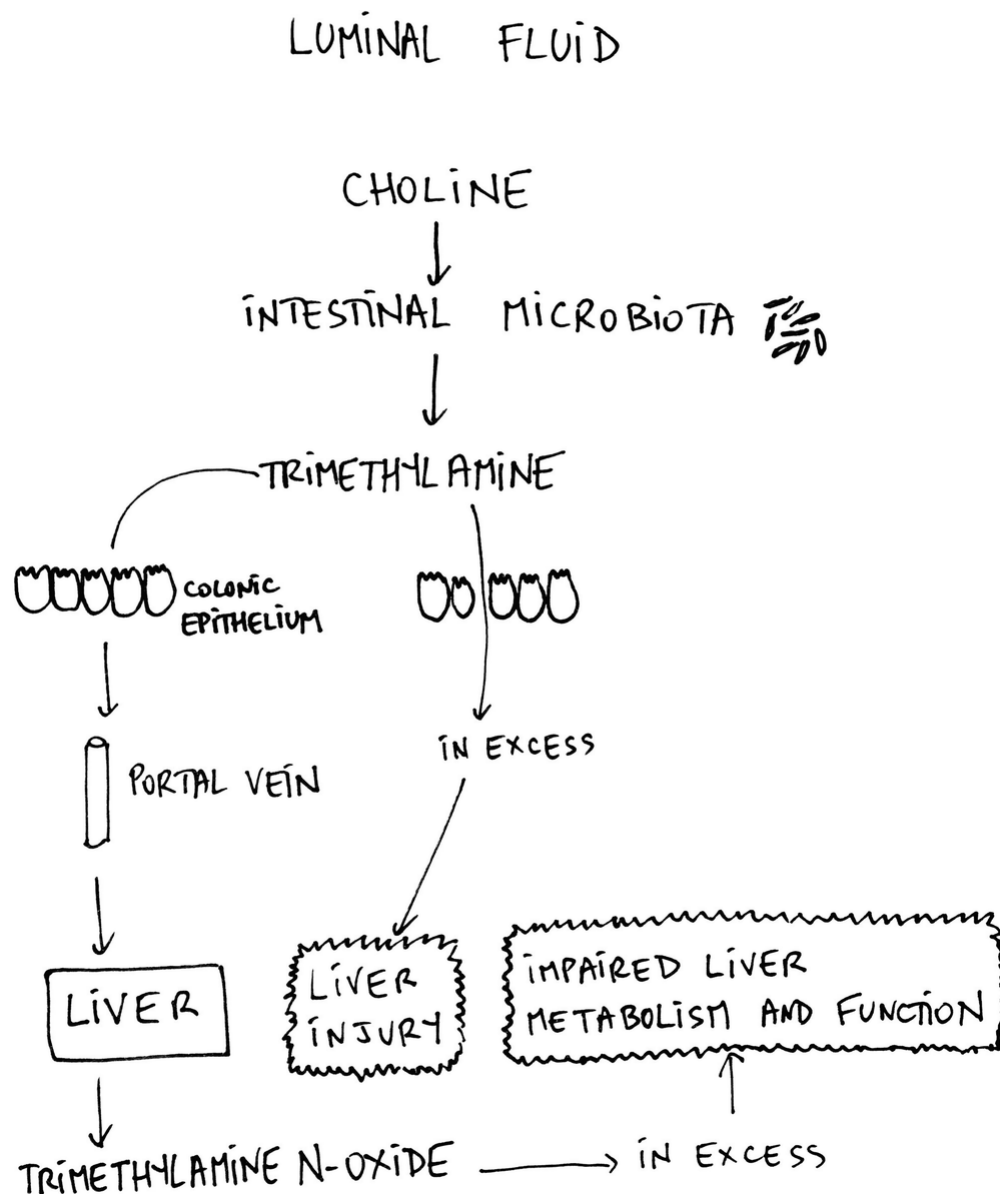 LUMINAL FLUID
CHOLINE
INTESTINAL MICROBIOTA
TRIMETHYLAMINE
COLONIC
EPITHELIUM
IN EXCESS
PORTAL VEIN
LIVER
LIVER
INJURY
IMPAIRED LIVER
METABOLISM AND FUNCTION
TRIMETHYLAMINE N-OXIDE
IN EXCESS